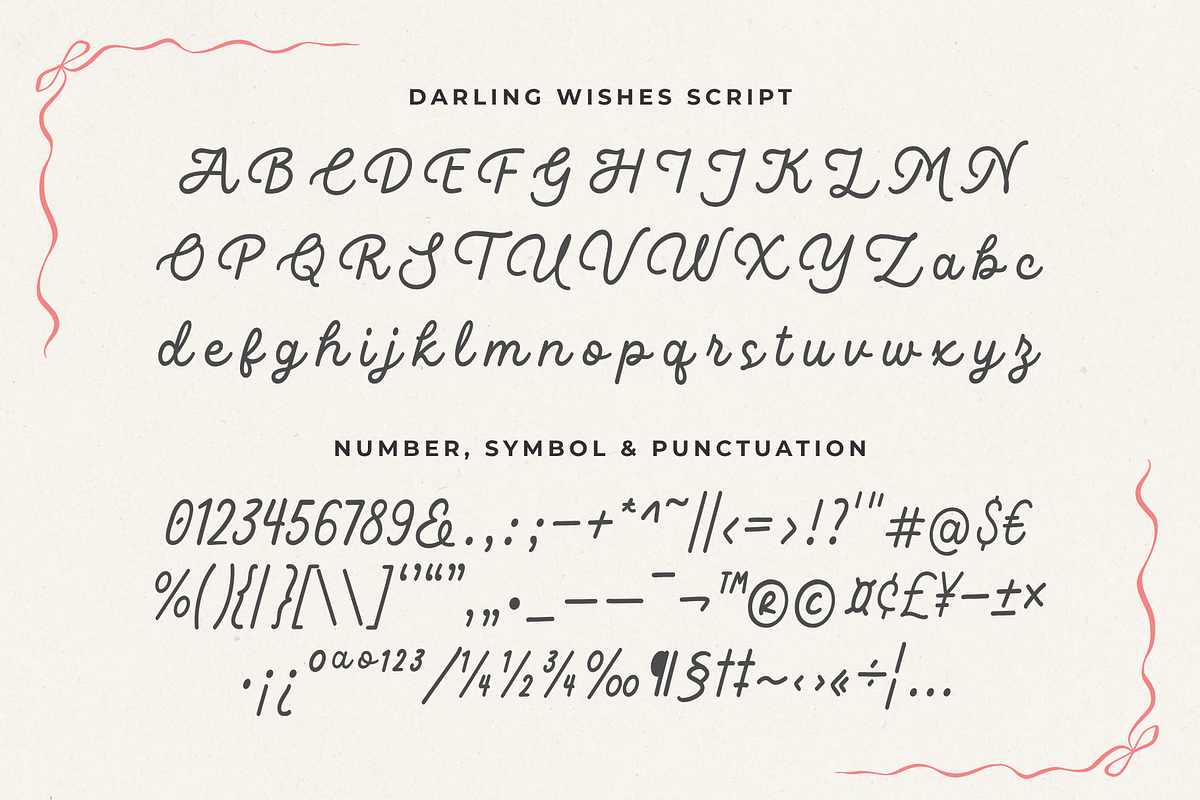 DARLING WISHES SCRIPT
A B C D E F G H I J K L M N
O P Q R S T U V W X Y Z a b c
d e f g h i j k l m n o p q r s t u v w x y z
NUMBER, SYMBOL & PUNCTUATION
0123456789&.,:;-+*^~||<=>!?'"#@$€
%(){|}[\\]‘’“”‚„•_–—¯¬™®©¤¢£¥−±×
·¡¿ºªº123⁄¼½¾%‰¶§†‡~‹›«÷¦...